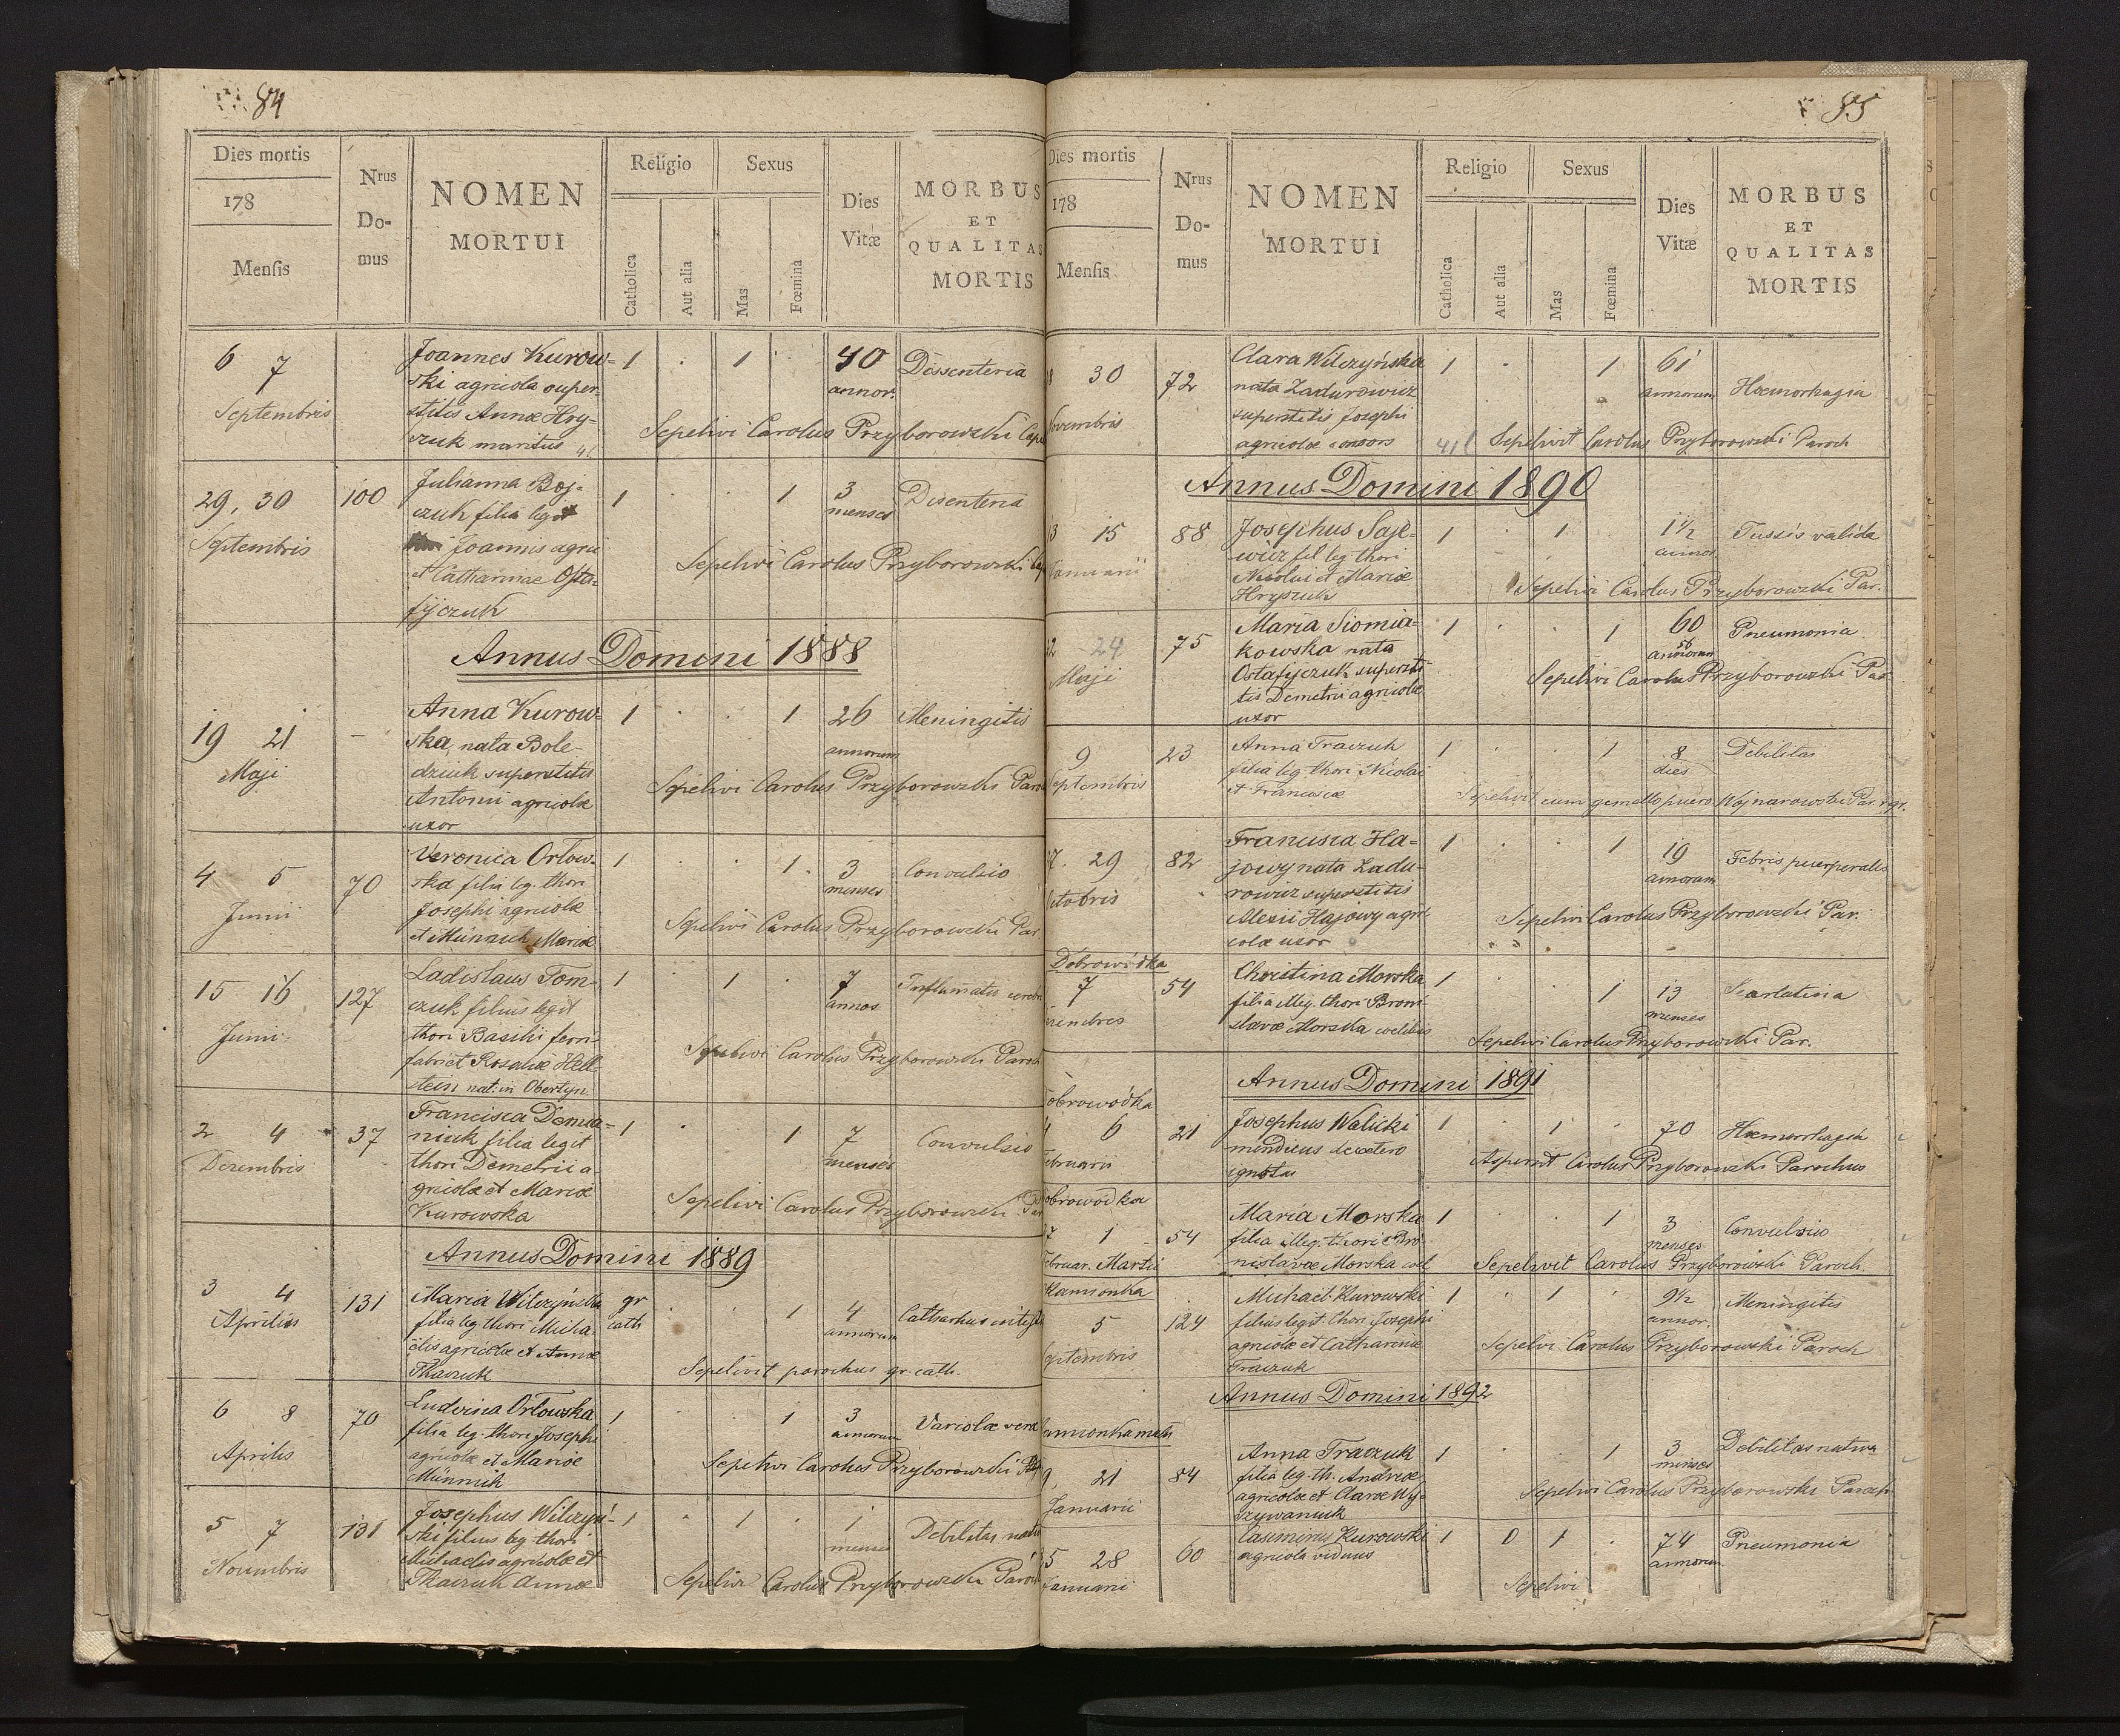 84
Dies mortis
178
Mensis
Nrus
Do-
mus
NOMEN
MORTUI
Religio
Catholica
Aut alia
Sexus
Mas
Fœmina
Dies
Vitæ
MORBUS
ET
QUALITAS
MORTIS
6 7
Septembris
Joannes Kurow=
ski agricola super-
stitis Annæ Hry-
czuk maritus
1 . 1 .
40
annor.
Dissenteria
Sepelivi Carolus Przyborowski
29, 30
Septembris
100
Julianna Boj-
czuk filia legit
Joannis agric
et Catharinae Osta-
fijczuk
1 . . 1
3
menses
Disenteria
Sepelivi Carolus Przyborowski
Annus Domini 1888
19 21
Maji
-
Anna Kurow-
ska, nata Bole-
dziuk superstitis
Antonii agricolæ
uxor
1 . . 1
26
annorum
Meningitis
Sepelivi Carolus Przyborowski Paroc
4 5
Junii
70
Veronica Orlow-
ska filia leg. thori
Josephi agricolæ
et Münnich Mariæ
1 . . 1
3
menses
Convulsio
Sepelivi Carolus Przyborowski Par.
15 16
Junii
127
Ladislaus Tom-
czuk filius legit
thori Basilii ferri-
fabri et Rosaliæ Hell
stein nat: in Obertyn
1 . 1 .
7
annos
Inflamatis
Sepelivi Carolus Przyborowski Paroch
2 4
Dezembris
37
Francisca Demia=
niuk filia legit
thori Demetrii a
gricolæ et Mariæ
Kurowska
1 . 1
7
menses
Convulsio
Sepelivi Carolus Przyborowski Par
Annus Domini 1889
3 4
Aprilis
131
Maria Wilczyńska
filia leg. thori Micha-
ëlis agricolæ et Annæ
Tkaczuk
gr
cath
. . 1
4
annorum
Catharhus
Sepelivit parochus gr. cath.
6 8
Aprilis
70
Ludvina Orłowska
filia leg. thori Josephi
agricolæ et Mariæ
Münnich
1 . . 1
3
annorum
Variolæ veræ
Sepelivi Carolus Przyborowski
5 7
Novembris
131
Josephus Wilczyń-
ski filius leg. thori
Michaelis agricolæ et
Tkaczuk Annæ
1 . 1 .
1
mensis
Debilitas
Sepelivi Carolus Przyborowski Paroch
85
Dies mortis
178
Mensis
Nrus
Do-
mus
NOMEN
MORTUI
Religio
Catholica
Aut alia
Sexus
Mas
Fœmina
Dies
Vitæ
MORBUS
ET
QUALITAS
MORTIS
30
ovembris
72
Clara Wilczyńska
nata Zadurowicz
superstitis Josephi
agricolæ consors
1 . 1
61
annorum
Hæmorhagia
Sepelivit Carolus Przyborowski Paroch
Annus Domini 1890
3 15
Januarii
88
Josephus Saje-
wicz fil leg. thori
Nicolai et Mariæ
Hryszuk
1 . 1 .
1½
annos
Tussis valida
Sepelivi Carolus Przyborowski Par.
2 24
Maji
75
Maria Siomia-
kowska nata
Ostafijczuk supersti
tis Demetrii agricolæ
uxor
1 . . 1
60
56
annorum
Pneumonia
Sepelivi Carolus Przyborowski Par
9
Septembris
23
Anna Traczuk
filia leg. thori Nicolai
et Franciscæ
1 . . 1
8
dies
Debilitas
Sepelivit cum gemello puero Wojnarowski Par. r. gr.
7. 29
ctobris
82
Francisca Ha-
jowy nata Zadu-
rowicz superstitis
Alexii Hajowy agri
colæ uxor
1 . . 1
19
annorum
Febris puerperalis
Sepelivi Carolus Przyborowski Par.
Dobrowódka
7
54
Christina Morska
filia illeg. thori Broni-
slavæ Morska cœlibis
1 . . 1
13
menses
Scarlatina
Sepelivi Carolus Przyborowski Par.
Annus Domini 1891
obrowódka
6
ebruarii
21
Josephus Walicki
mendicus de cetero
ignotus
1 . 1 .
70
Hæmorrhagia
Asperсit Carolus Przyborowski Parochus
obrowodka
7 1
ebruar. Martii
54
Maria Morska
filia illeg. thori Bro-
nislavæ Morska cœl
1 . . 1
3
menses
Convulsio
Sepelivit Carolus Przyborowski Paroch.
Kamionka
5
eptembris
124
Michaël Kurowski
filius legit. thori Josephi
agricolæ et Catharinæ
Traczuk
1 . 1 .
9½
annor.
Meningitis
Sepelivi Carolus Przyborowski Paroch
Annus Domini 1892
amionka
21
Januarii
84
Anna Traczuk
filia leg. th. Andreæ
agricolæ et Claræ Wy-
szywaniuk
1 . . 1
3
menses
Debilitas nativa
Sepelivi Carolus Przyborowski Paroch
5 28
Januarii
60
Casimirus Kurowski
agricola viduus
1 0 1 .
74
annorum
Pneumonia
Sepelivi